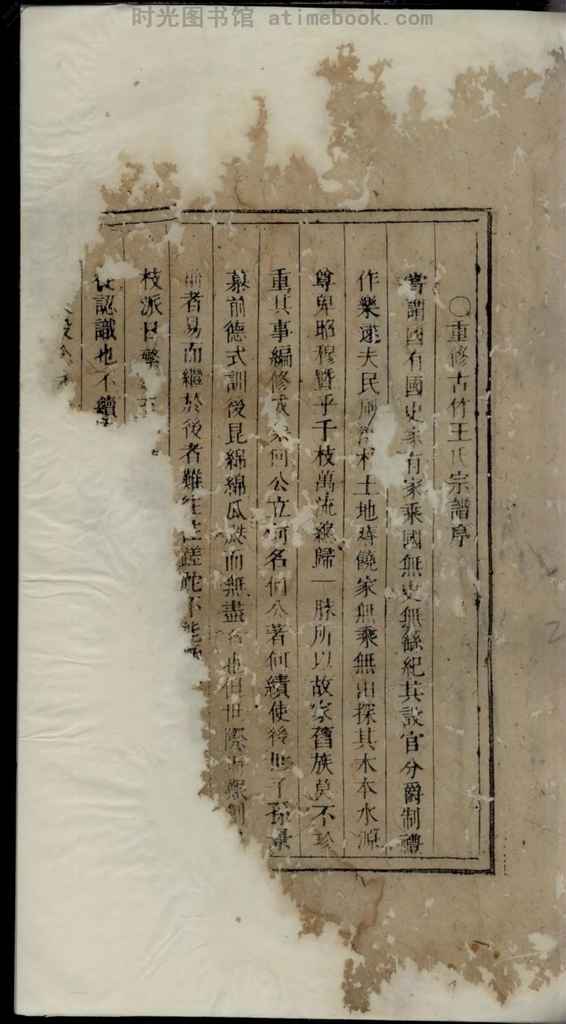 时光图书馆 atimebook.com
○重修古竹王氏宗譜序
嘗謂國有國史家有家乘國無史無餘紀其設官分爵制禮
作樂逮夫民風 村土地 饒家無乘無由探其木本水源
尊卑昭穆暨乎千枝萬流 歸一脉所以故家舊族莫不珍
重其事編修 何公立何名何公著何績使後世子孫
慕前德式訓後昆綿綿瓜瓞而無盡 也但世際
前者易而繼於後者難往往蹉跎不能
枝派日繁
認識也不續